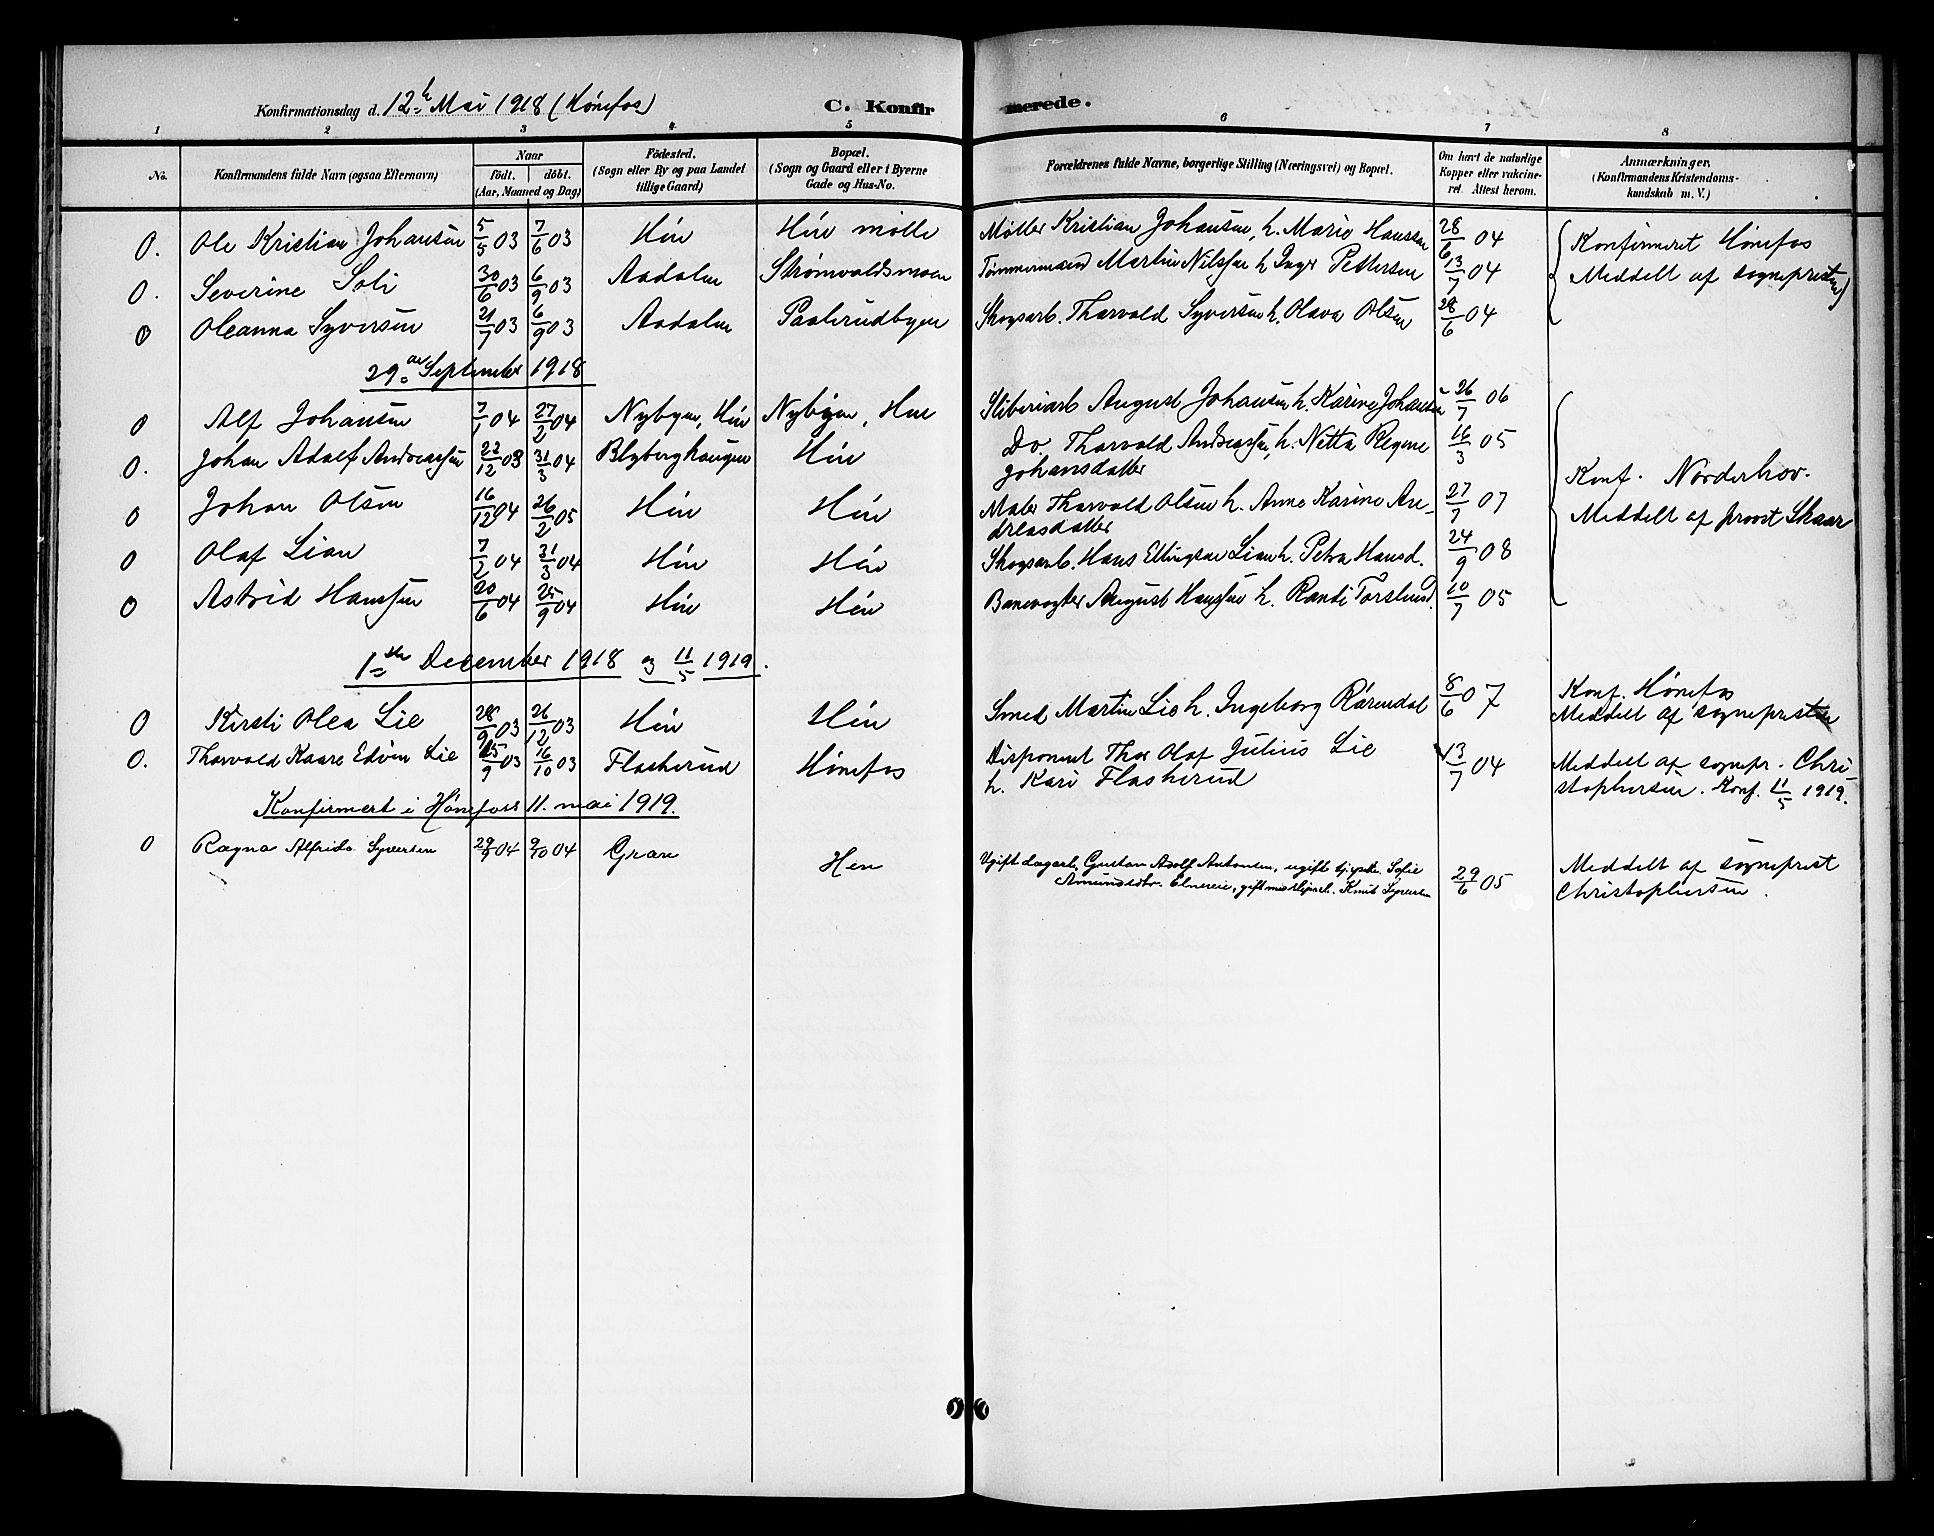 Konfirmationsdag d. 12te Mai 1918 (Hönefos) C. Konfirmerede.
1 2 3 4 5 6 7 8
No. Konfirmandens fulde Navn (ogsaa Efternavn) Naar födt. döbt. (Aar, Maaned og Dag) Födested. (Sogn eller By og paa Landet tillige Gaard) Bopæl. (Sogn og Gaard eller i Byerne Gade og Hus-No. Forældrenes fulde Navne, borgerlige Stilling (Næringsvei) og Bopæl. Om havt de naturlige Kopper eller vakcineret. Attest herom. Anmærkninger. (Konfirmandens Kristendomskundskab m. V.)
0. Ole Kristian Johansen 5/5 03 7/6 03 Hén Hén mølle Møller Kristian Johansen, h. Marie Hansen 28/6 04 Konfirmeret Hönefos
0. Severine Soli 30/6 03 6/9 03 Aadalen Strømvoldsmoen Tømmermand Martin Nilssen h Inger Pettersen 13/7 04 Meddelt af sogneprest
0 Oleanna Syversen 21/7 03 6/9 03 Aadalen Paalerudbyen Skogsarb. Thorvald Syversen h. Olava Olsen 28/6 04
29de September 1918
0 Alf Johansen 7/1 04 27/2 04 Nybyen, Hén Nybyen, Hén Sliberiarb August Johansen h. Karine Johansen 26/7 06
0. Johan Adolf Andreassen 22/12 03 31/3 04 Blyberghaugen Hén Do. Thorvald Andreassen, h. Netta Regine 16/3 05
Johansdatter
0 Johan Olsen 16/12 04 26/2 05 Hén Hén Maler Thorvald Olsen h. Anne Karine An- 27/7 07 Konf. Norderhov.
dreasdatter Meddelt af provst Skaar
0 Olaf Lian 7/2 04 31/3 04 Hén Hén Skogsarb. Hans Ellingsen Lian h. Petra Hansd. 24/9 08
0 Astrid Hanssen 20/6 04 25/9 04 Hén Hén Banevogter August Hanssen h. Randi Torslund. 10/7 05
1ste December 1918 og 11/5 1919.
0 Kirsti Olea Lie 28/9 03 26/12 03 Hén Hén Smed Martin Lie h. Ingeborg Rørendal 8/6 07 Konf. Hönefos
Meddelt af sognepresten
0. Thorvald Kaare Edvin Lie 15/9 03 16/10 03 Flaskerud Hönefos Disponent Thor Olaf Julius Lie 13/7 04 Meddelt af sognepr. Chri-
h. Kari Flaskerud stophersen. Konf. 11/5 1919.
Konfirmert i Hönefoss 11. mai 1919.
0 Ragna Alfrida Syversen 29/9 04 9/10 04 Gran Hen Ugift dagarb. Gustav Adolf Antonsen, ugift Sofie 29/6 05 Meddelt af sogneprest
Amundsdtr. gift med Knut Syversen Christophersen.